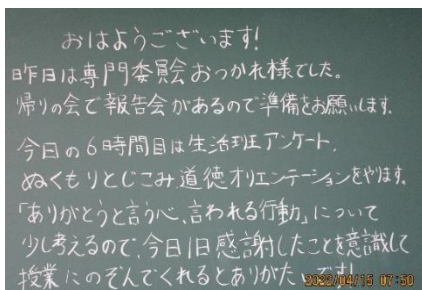 おはようございます!
昨日は専門委員会おつかれ様でした。
帰りの会で報告会があるので準備をお願いします。
今日の6時間目は生活班アンケート、
ぬくもりとじこみ、道徳オリエンテーションをやります。
「ありがとうと言う心、言われる行動」について
少し考えるので、今日1日感謝したことを意識して
授業にのぞんでくれるとありがたいです!
2022/04/15 07:50